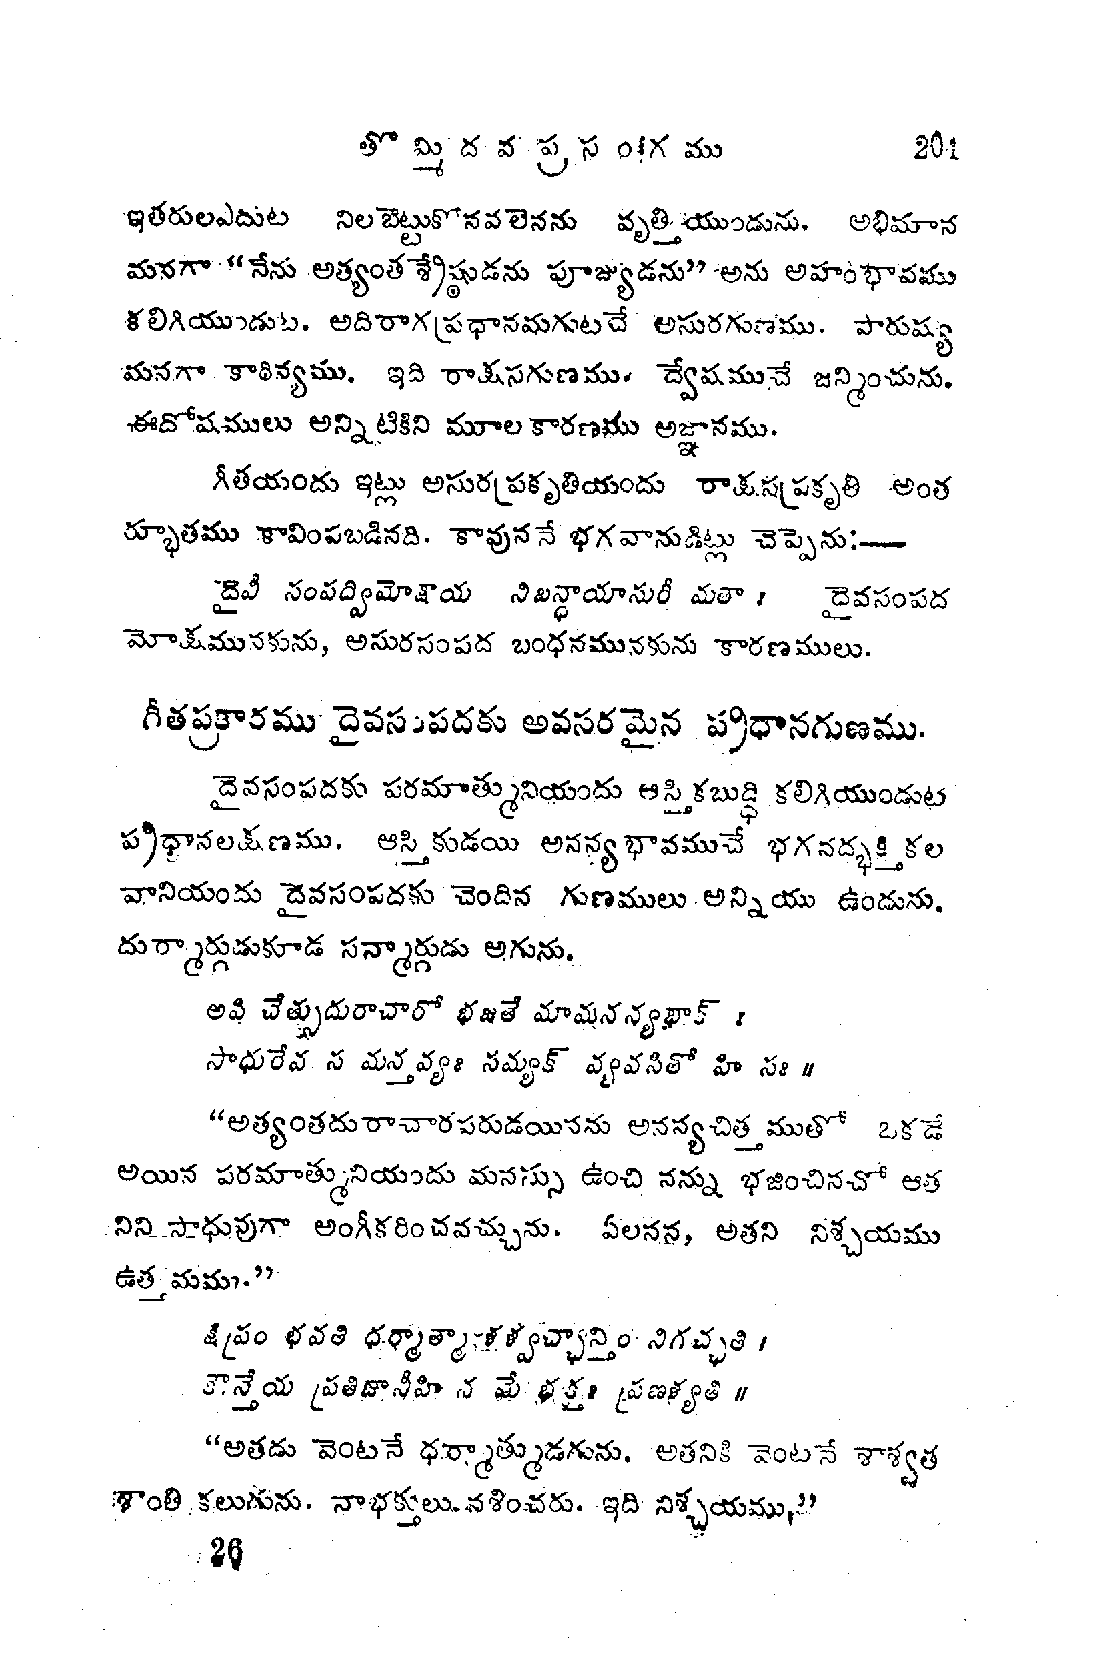 తొమ్మిదవ ప్రసంగము 201
ఇతరులఎదుట నిలబెట్టుకోనవలెనను వృత్తి యుండును. అభిమాన
మనగా “నేను అత్యంత శ్రేష్ఠుడను పూజ్యుడను” అను అహంభావము
కలిగియుండుట. అదిరాగప్రధానమగుటచే అసురగుణము. పారుష్య
మనగా కాఠిన్యము. ఇది రాక్షసగుణము. ద్వేషముచే జన్మించును.
ఈదోషములు అన్నిటికిని మూలకారణము అజ్ఞానము.
గీతయందు ఇట్లు అసురప్రకృతియందు రాక్షసప్రకృతి అంత
ర్భూతము కావింపబడినది. కావుననే భగవానుడిట్లు చెప్పెను:—
దైవీ సంపద్విమోక్షాయ నిబన్ధాయాసురీ మతా । దైవసంపద
మోక్షమునకును, అసురసంపద బంధనమునకును కారణములు.
గీతప్రకారము దైవసంపదకు అవసరమైన ప్రధానగుణము.
దైవసంపదకు పరమాత్మునియందు ఆస్తికబుద్ధి కలిగియుండుట
ప్రధానలక్షణము. ఆస్తికుడయి అనన్యభావముచే భగవద్భక్తి కల
వానియందు దైవసంపదకు చెందిన గుణములు అన్నియు ఉండును.
దుర్మార్గుడుకూడ సన్మార్గుడు అగును.
అపి చేత్సుదురాచారో భజతే మామనన్యభాక్ ।
సాధురేవ స మన్తవ్యః సమ్యక్ వ్యవసితో హి సః ॥
“అత్యంతదురాచారపరుడయినను అనన్యచిత్తముతో ఒకడే
అయిన పరమాత్మునియందు మనస్సు ఉంచి నన్ను భజించినచో ఆత
నిని సాధువుగా అంగీకరించవచ్చును. ఏలనన, అతని నిశ్చయము
ఉత్తమము.”
క్షిప్రం భవతి ధర్మాత్మా శశ్వచ్ఛాన్తిం నిగచ్ఛతి ।
కౌన్తేయ ప్రతిజానీహి న మే భక్తః ప్రణశ్యతి ॥
“అతడు వెంటనే ధర్మాత్ముడగును. అతనికి వెంటనే శాశ్వత
శాంతి కలుగును. నాభక్తులు నశించరు. ఇది నిశ్చయము,”
26